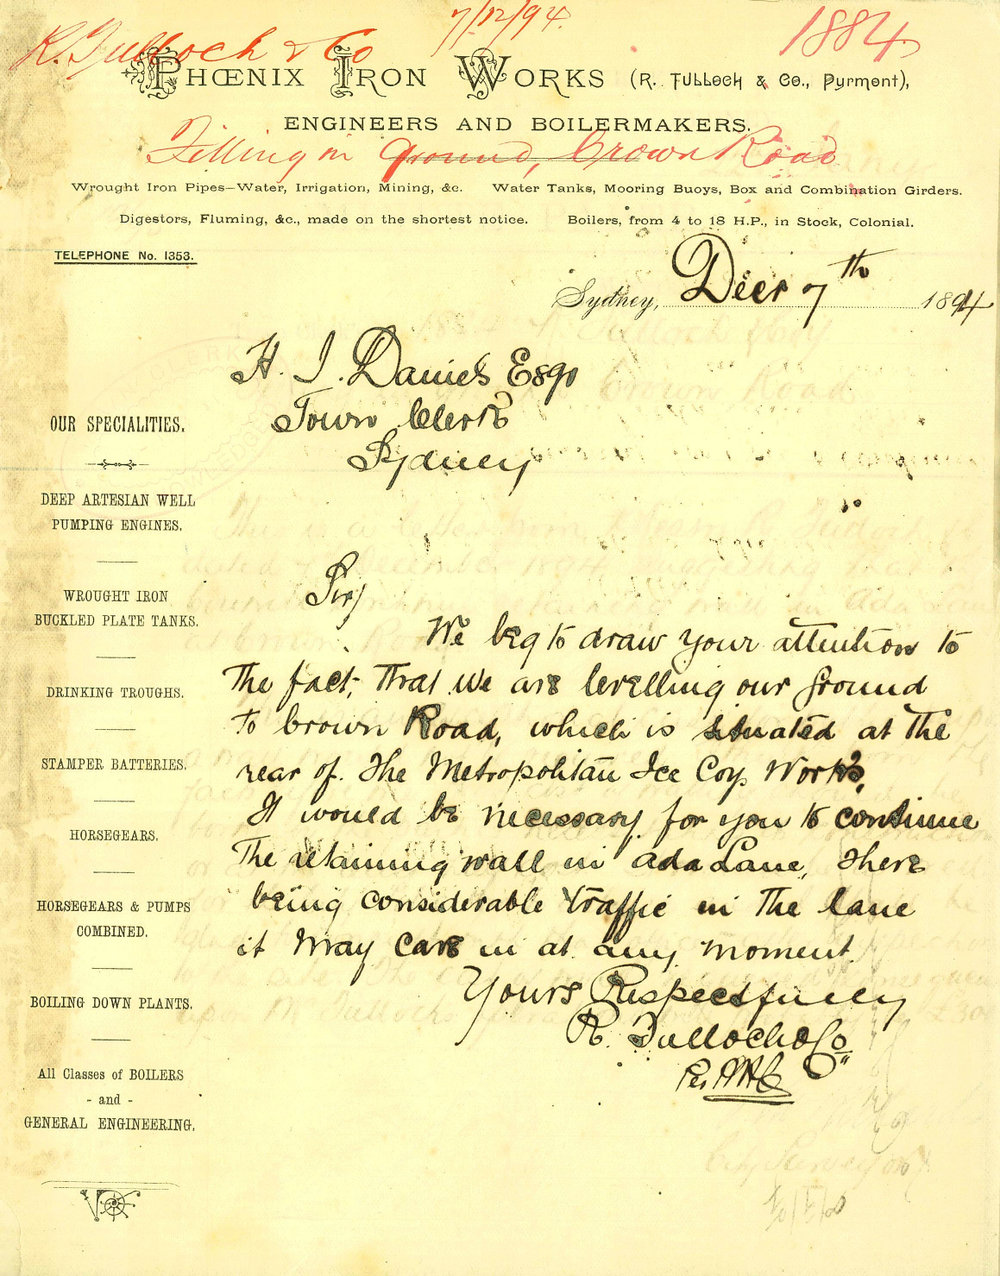 R. Tulloch & Co
7/12/94.
1884
PHŒNIX IRON WORKS (R. TULLOCH & Co., Pyrmont),
ENGINEERS AND BOILERMAKERS.
Filling in ground, Crown Road
Wrought Iron Pipes—Water, Irrigation, Mining, &c.
Digestors, Fluming, &c., made on the shortest notice.
Water Tanks, Mooring Buoys, Box and Combination Girders.
Boilers, from 4 to 18 H.P., in Stock, Colonial.
TELEPHONE No. 1353.
Sydney, Decr 7th 1894
H. J. Daniels Esqr
Town Clerk
Sydney
Sir,
We beg to draw your attention to
the fact, that we are levelling our ground
to Crown Road, which is situated at the
rear of The Metropolitan Ice Coy Works,
It would be necessary for you to continue
the retaining wall in Ada Lane, there
being considerable traffic in the lane
it may cave in at any moment.
Yours Respectfully
R. Tulloch & Co
OUR SPECIALITIES.
DEEP ARTESIAN WELL
PUMPING ENGINES.
WROUGHT IRON
BUCKLED PLATE TANKS.
DRINKING TROUGHS.
STAMPER BATTERIES.
HORSEGEARS.
HORSEGEARS & PUMPS
COMBINED.
BOILING DOWN PLANTS.
All Classes of BOILERS
- and -
GENERAL ENGINEERING.